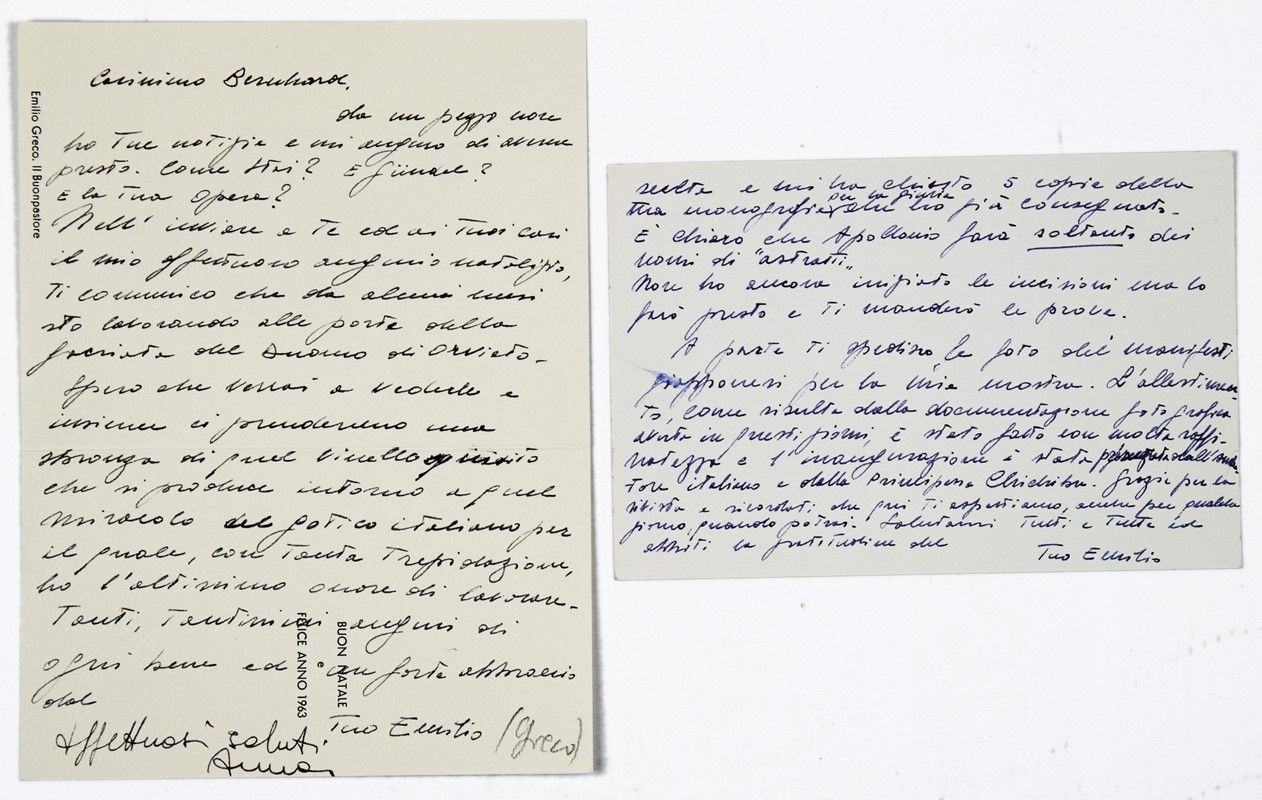 Emilio Greco. Il Buonpastore
Carissimo Bernhard,
da un pezzo non
ho tue notizie e mi auguro di averne
presto. Come stai? E Günael?
E la tua opera?
Nell' inviare a te ed ai tuoi cari
il mio affettuoso augurio natalizio,
ti comunico che da alcuni mesi
sto lavorando alle porte della
facciata del Duomo di Orvieto.
Spero che verrai a vederle e
insieme ci prenderemo una
sboronza di quel vinello squisito
che si produce intorno a quel
miracolo del gotico italiano per
il quale, con tanta trepidazione,
ho l'altissimo onore di lavorare.
Tanti, tantissimi auguri di
ogni bene ed un forte abbraccio
dal
Tuo Emilio (Greco)
Affettuosi saluti.
Anna
BUON NATALE
e
FELICE ANNO 1963
scelte e mi ha chiesto 5 copie della
tua monografia per la giuria che ho già consegnato.
È chiaro che Apollonio farà soltanto dei
nomi di "astratti„
Non ho ancora iniziato le incisioni ma lo
farò presto e ti manderò le prove.
A parte ti spedisco le foto dei manifesti
giapponesi per la mia mostra. L'allestimen-
to, come risulta dalla documentazione fotografica
avuta in questi giorni, è stato fatto con molta raffi-
natezza e l'inaugurazione è stata dall'amba-
tore italiano e dalla Principessa Chichibu. Grazie per la
visita e ricordati che qui ti aspettiamo, anche per qualche
giorno, quando potrai. Salutami tutti e tutte ed
abbiti la gratitudine del
Tuo Emilio